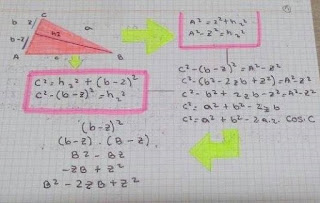 C
b z a
b-z h₂
A B
c² = h₂² + (b-z)²
c² - (b-z)² = h₂²
A² = z² + h₂²
A² - z² = h₂²
c² - (b-z)² = A² - z²
c² - (b² - 2b z + z²) = A² - z²
c² - b² + 2z b - z² = A² - z²
c² = a² + b² - 2z b
c² = a² + b² - 2 a.z. Cos. C
(b-z)²
(b-z) . (B-z)
B² - Bz
-zB + z²
B² - 2zB + z²